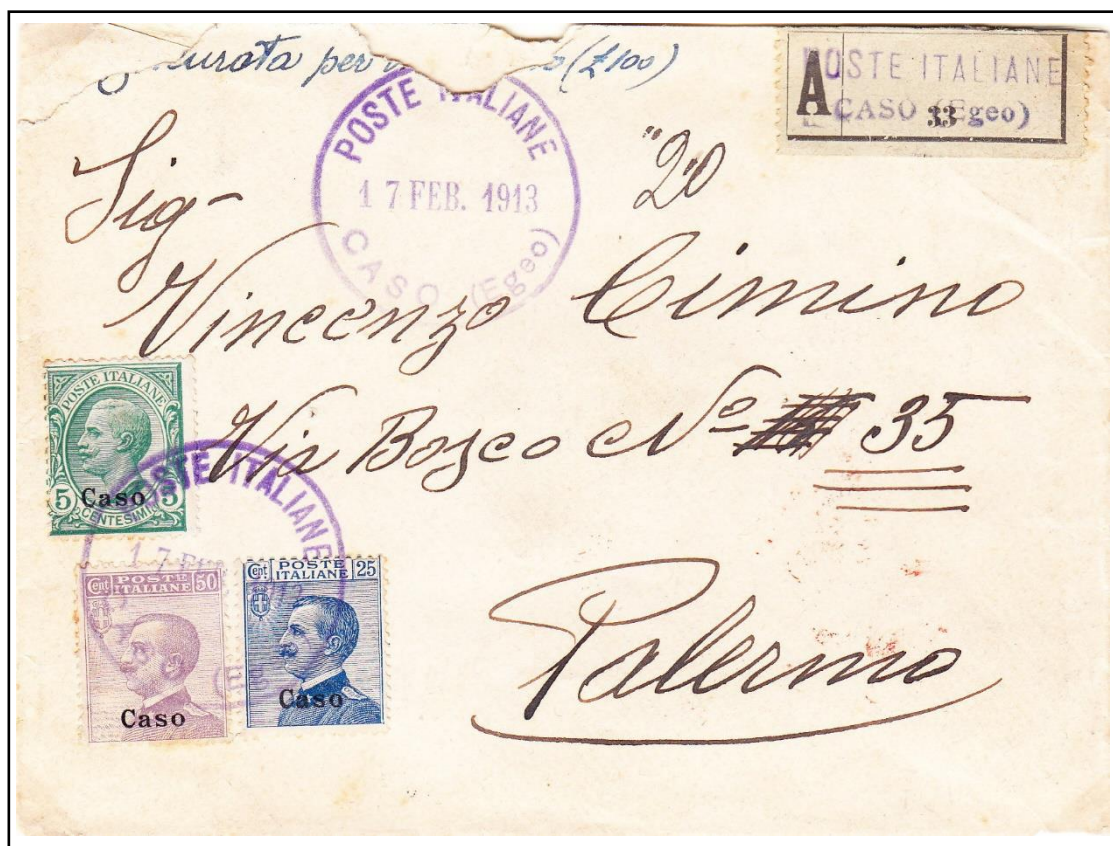 (£100)
POSTE ITALIANE
CASO (Egeo)
A
33
POSTE ITALIANE
17 FEB. 1913
CASO (Egeo)
"20
Sig-
Vincenzo Cimino
Via Bosco No 35
Palermo
POSTE ITALIANE
5 5
CENTESIMI
Caso
POSTE ITALIANE
17 FE
Cent POSTE ITALIANE 50
Caso
Cent POSTE ITALIANE 25
Caso